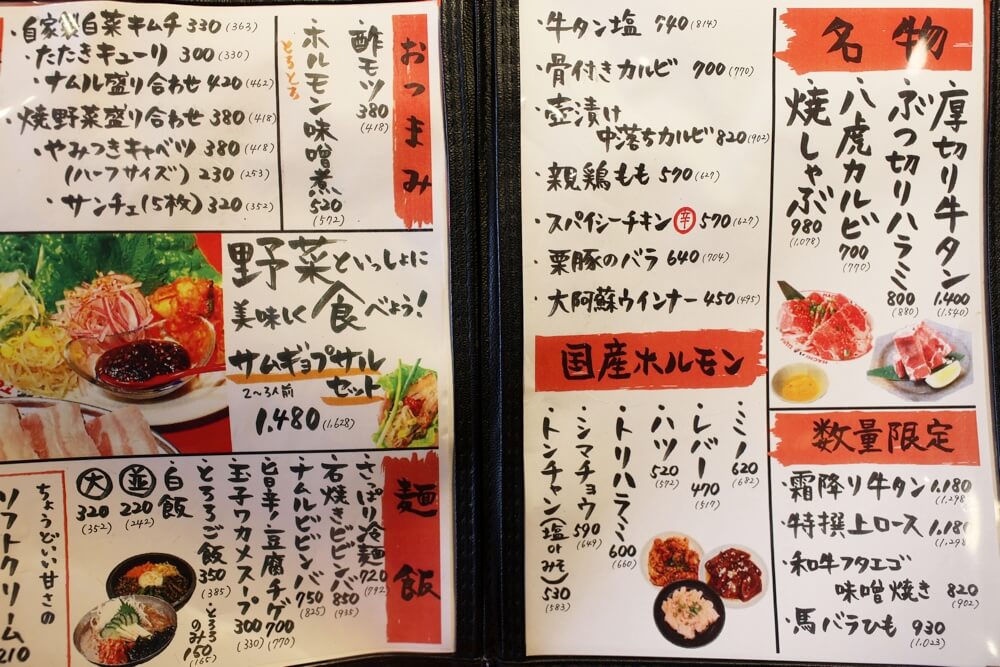 おつまみ
酢モツ 380 (418)
とろとろ
ホルモン味噌煮 520 (572)
・自家製白菜キムチ 330 (363)
・たたきキューリ 300 (330)
・ナムル盛り合わせ 420 (462)
・焼野菜盛り合わせ 380 (418)
・やみつきキャベツ 380 (418)
(ハーフサイズ) 230 (253)
・サンチェ(5枚) 320 (352)
野菜といっしょに
美味しく食べよう!
サムギョプサル
セット
2〜3人前
1.480 (1.628)
麺 飯
・さっぱり冷麺 720 (792)
・石焼きビビンバ 850 (935)
・ナムルビビンバ 750 (825)
・旨辛!豆腐チゲ 700 (770)
・玉子ワカメスープ 300 (330)
・とろろご飯 350 (385)
・とろろのみ 150 (165)
・白飯
並 220 (242)
大 320 (352)
ちょうどいい甘さの
ソフトクリーム
210
名物
・厚切り牛タン 1.400 (1.540)
・ぶつ切りハラミ 800 (880)
・八虎カルビ 700 (770)
・焼しゃぶ 980 (1.078)
・牛タン塩 740 (814)
・骨付きカルビ 700 (770)
・壺漬け
中落ちカルビ 820 (902)
・親鶏もも 570 (627)
・スパイシーチキン 辛 570 (627)
・栗豚のバラ 640 (704)
・大阿蘇ウインナー 450 (495)
国産ホルモン
・ミノ 620 (682)
・レバー 470 (517)
・ハツ 520 (572)
・トリハラミ 600 (660)
・シマチョウ 590 (649)
・トンチャン(塩orみそ) 530 (583)
数量限定
・霜降り牛タン 1.180 (1.298
・特撰上ロース 1.180 (1.298
・和牛フタエゴ
味噌焼き 820 (902)
・馬バラひも 930 (1.023)